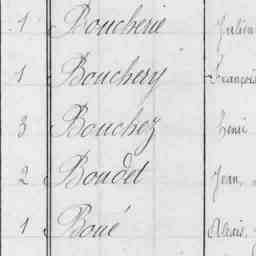 1 Boucherie Julien
1 Bouchery François
3 Bouchez Henri
2 Boudet Jean,
1 Boué Alexis,